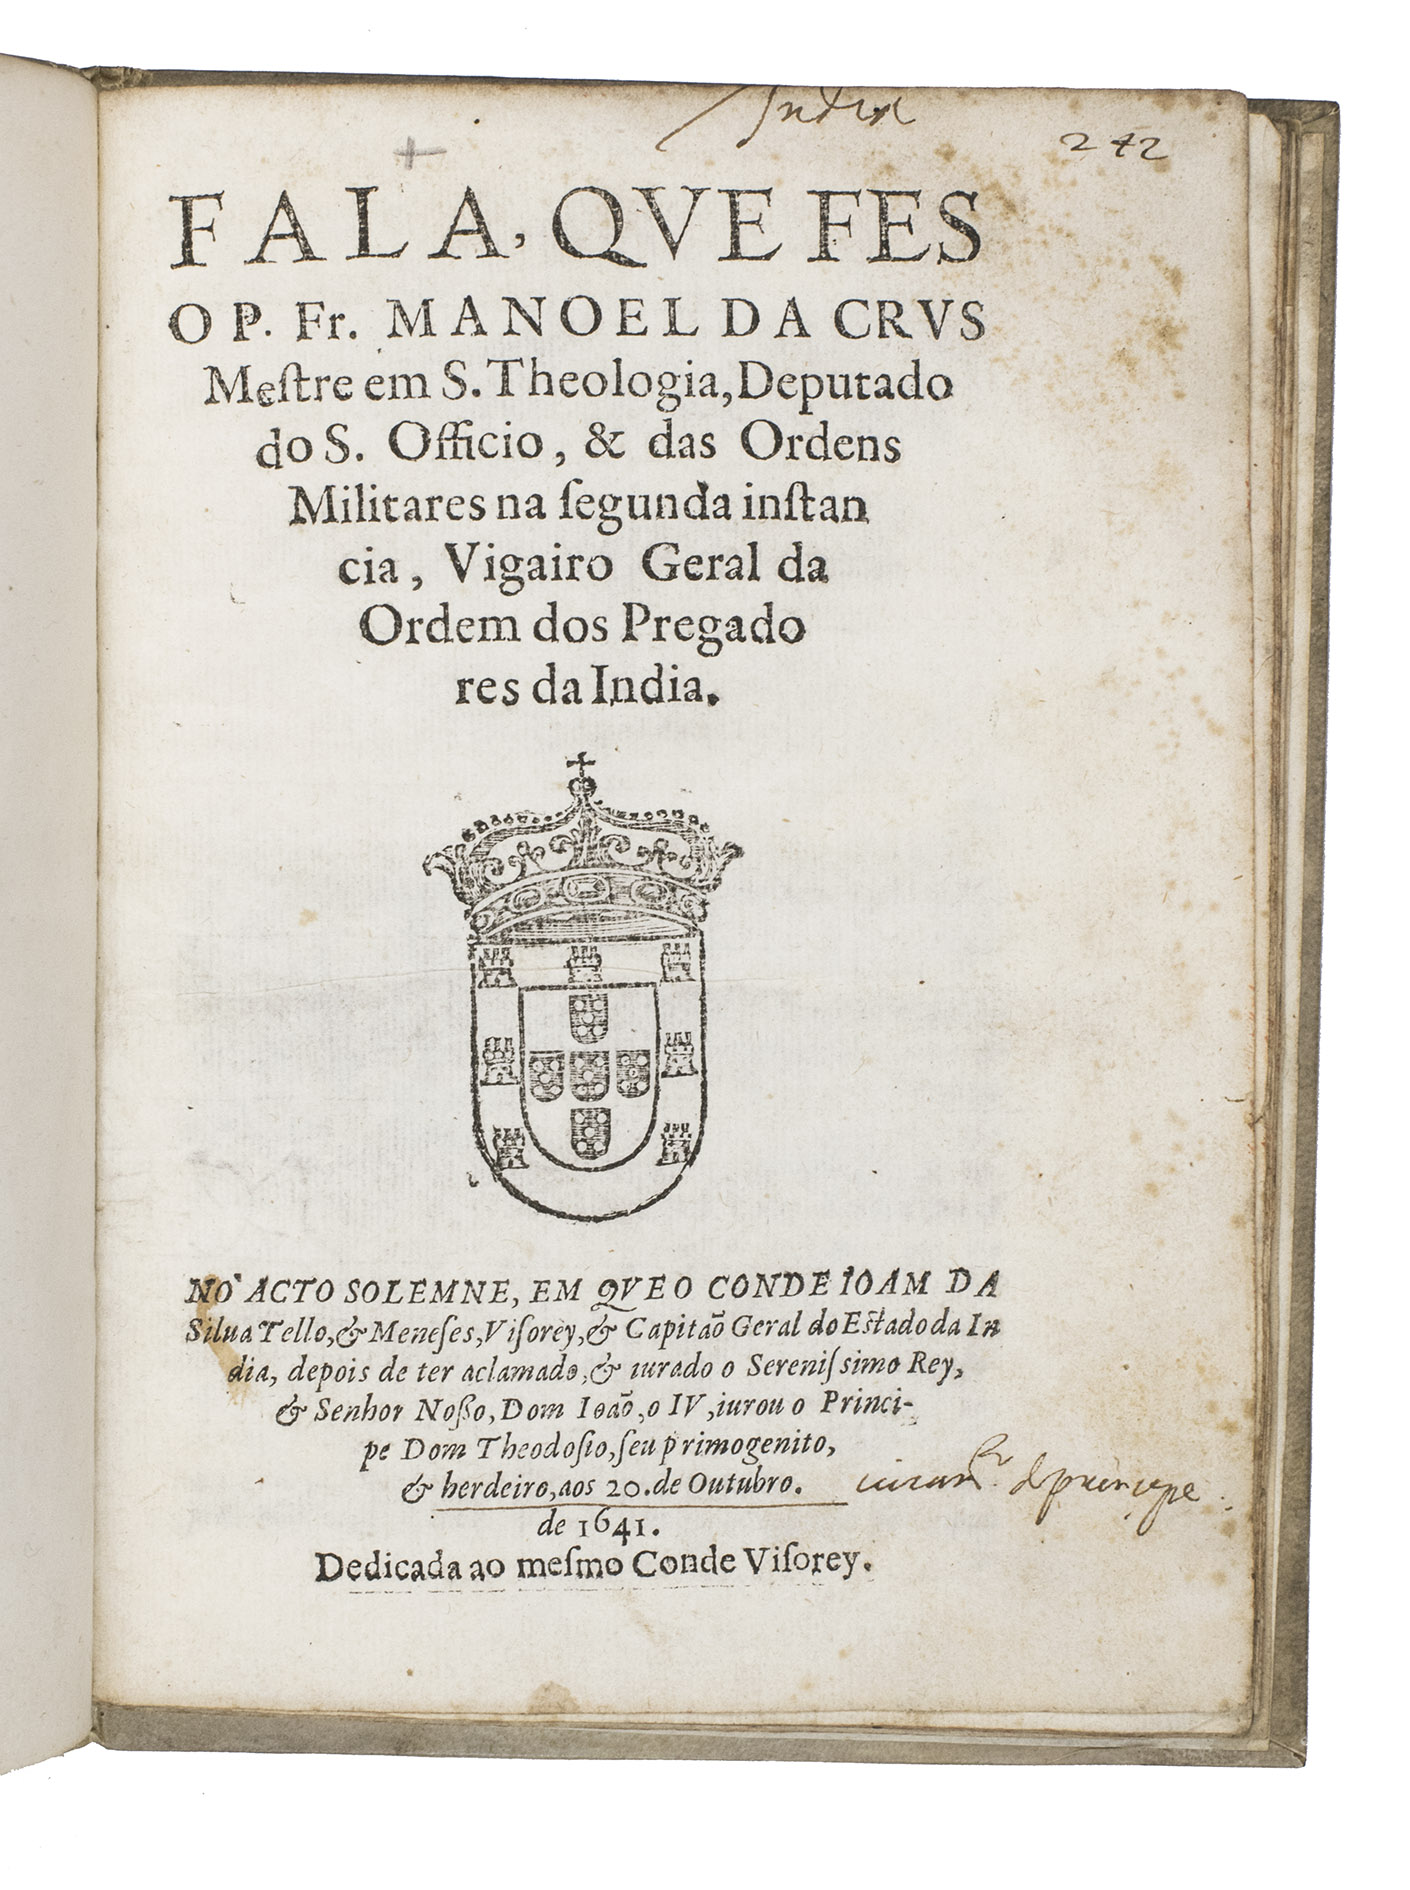 India
242
FALA, QVE FES
O P. Fr. MANOEL DA CRVS
Meſtre em S. Theologia, Deputado
do S. Officio, & das Ordens
Militares na ſegunda inſtan
cia, Vigairo Geral da
Ordem dos Pregado
res da India.
NO ACTO SOLEMNE, EM QVE O CONDE IOAM DA
Silua Tello, & Meneſes, Viſorey, & Capitaõ Geral do Eſtado da In
dia, depois de ter aclamado, & iurado o Sereniſsimo Rey,
& Senhor Noßo, Dom Ioaõ, o IV, iurou o Princi-
pe Dom Theodoſio, ſeu primogenito,
& herdeiro, aos 20. de Outubro.
de 1641.
Dedicada ao meſmo Conde Viſorey.